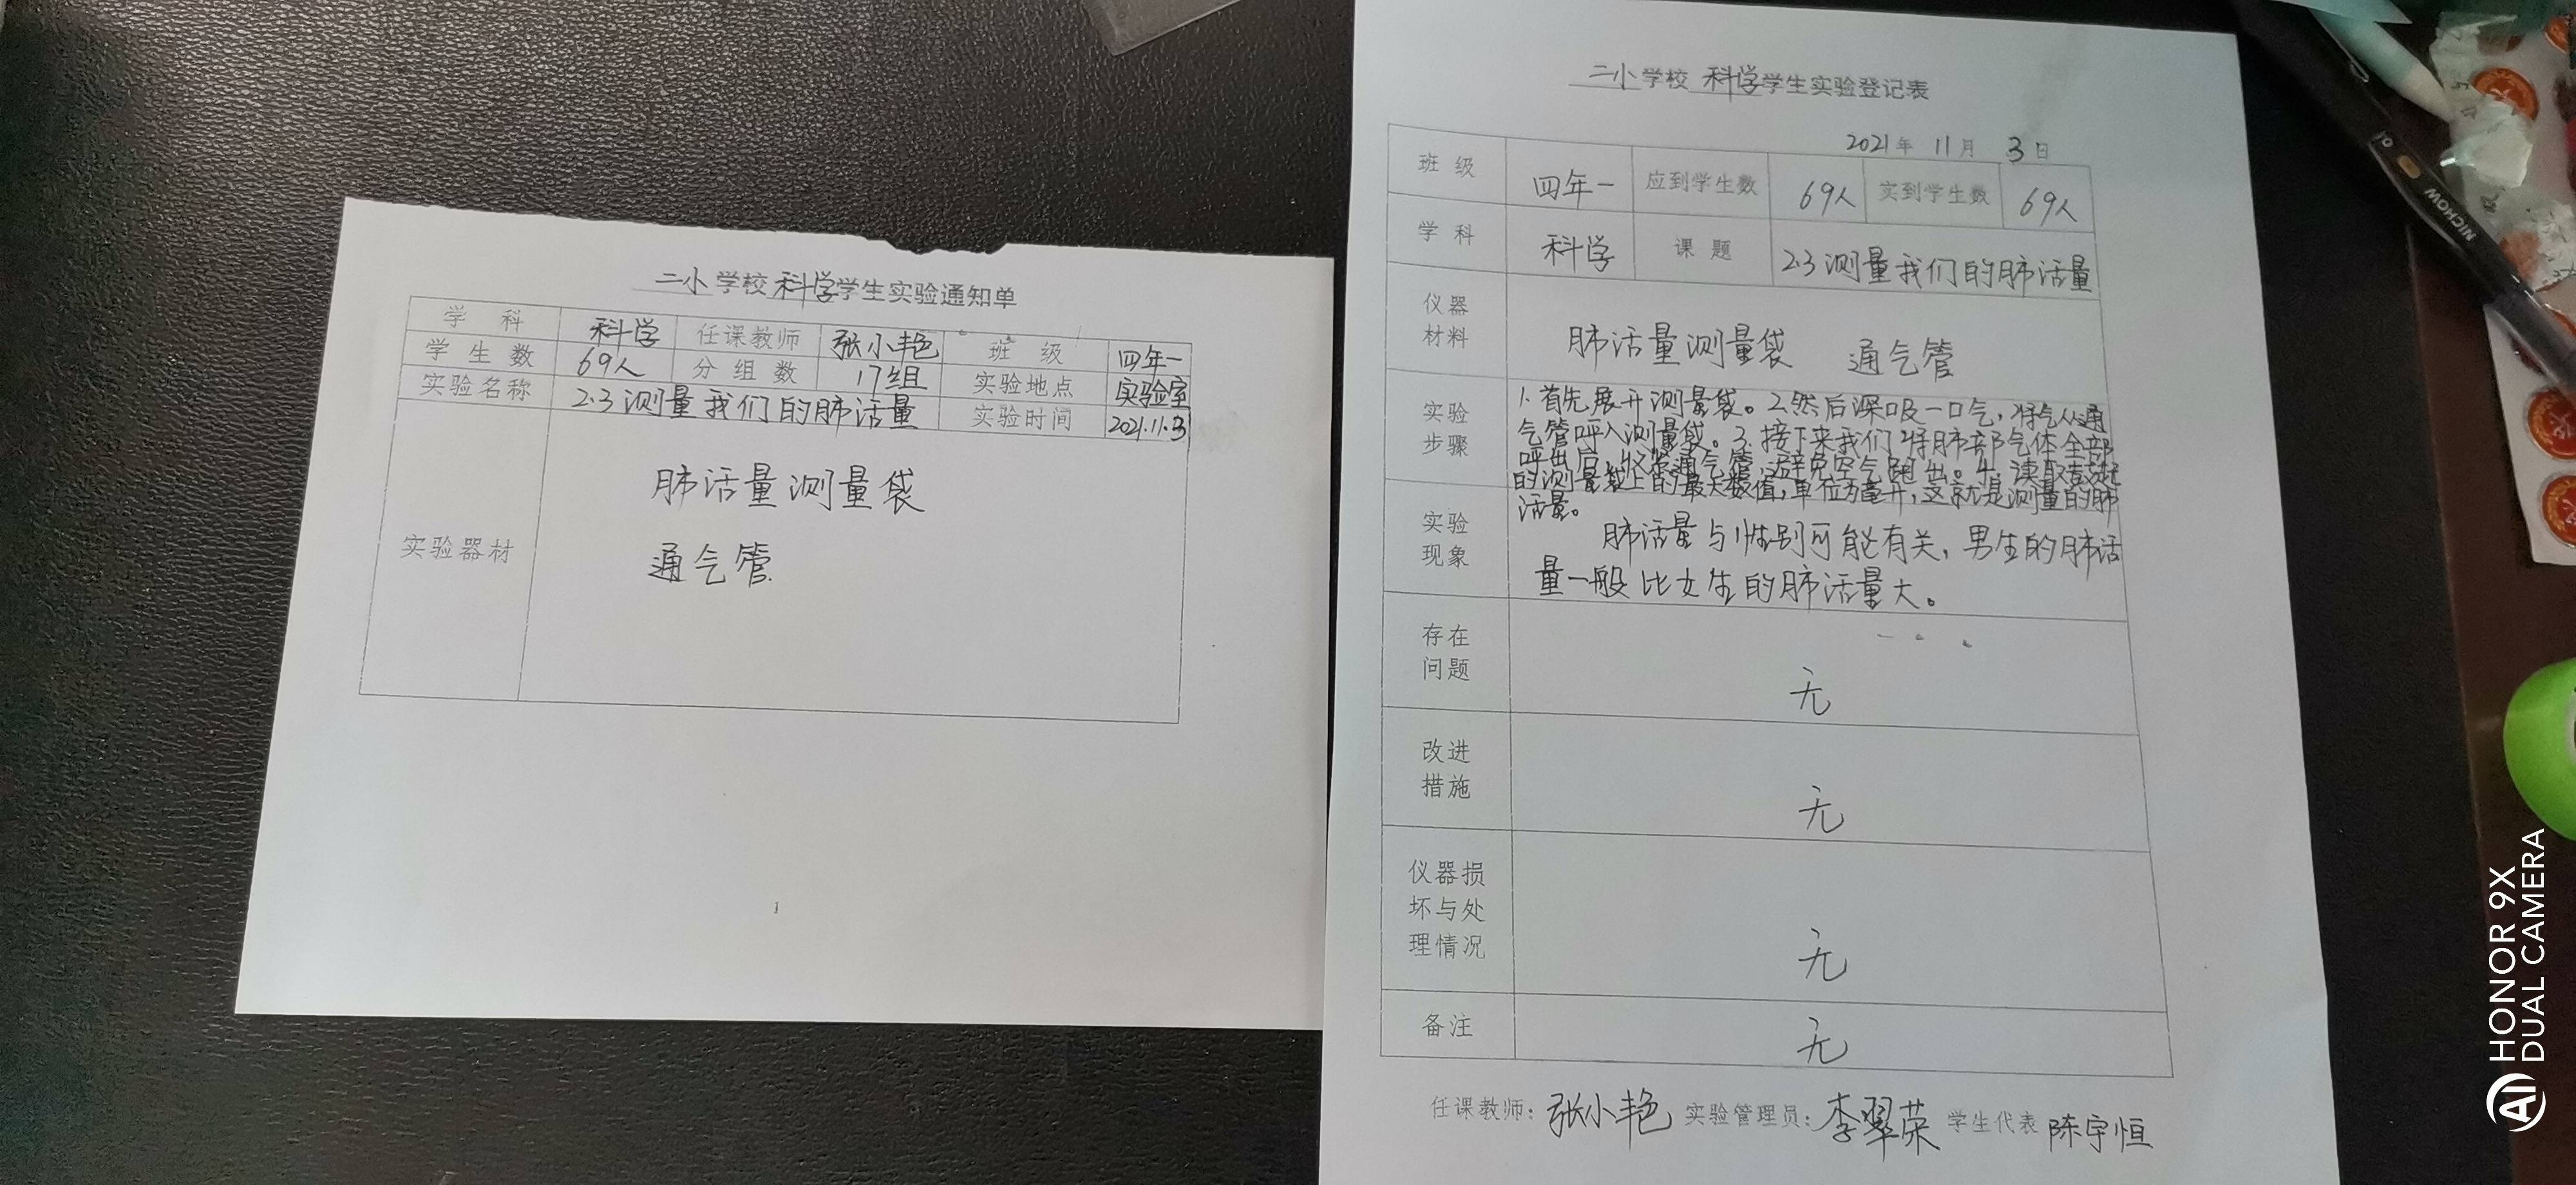 二小学校科学学生实验通知单
学科 科学 任课教师 张小艳 班级 四年一
学生数 69人 分组数 17组 实验地点 实验室
实验名称 2.3测量我们的肺活量 实验时间 2021.11.3
实验器材
肺活量测量袋
通气管
1
二小学校 科学学生实验登记表
2021年 11月 3日
班级 四年一 应到学生数 69人 实到学生数 69人
学科 科学 课题 2.3测量我们的肺活量
仪器
材料
肺活量测量袋 通气管
实验
步骤
1.首先展开测量袋。2.然后深吸一口气,将气从通
气管呼入测量袋。3.接下来我们将肺部气体全部
呼出后,收紧通气管,避免空气跑出。4.读取鼓起
的测量袋上的最大数值,单位为毫升,这就是测量的肺
活量。
实验
现象
肺活量与性别可能有关,男生的肺活
量一般比女生的肺活量大。
存在
问题
无
改进
措施
无
仪器损
坏与处
理情况
无
备注
无
任课教师:张小艳 实验管理员:李翠荣 学生代表 陈宇恒
NICHOW
HONOR 9X
DUAL CAMERA
AI